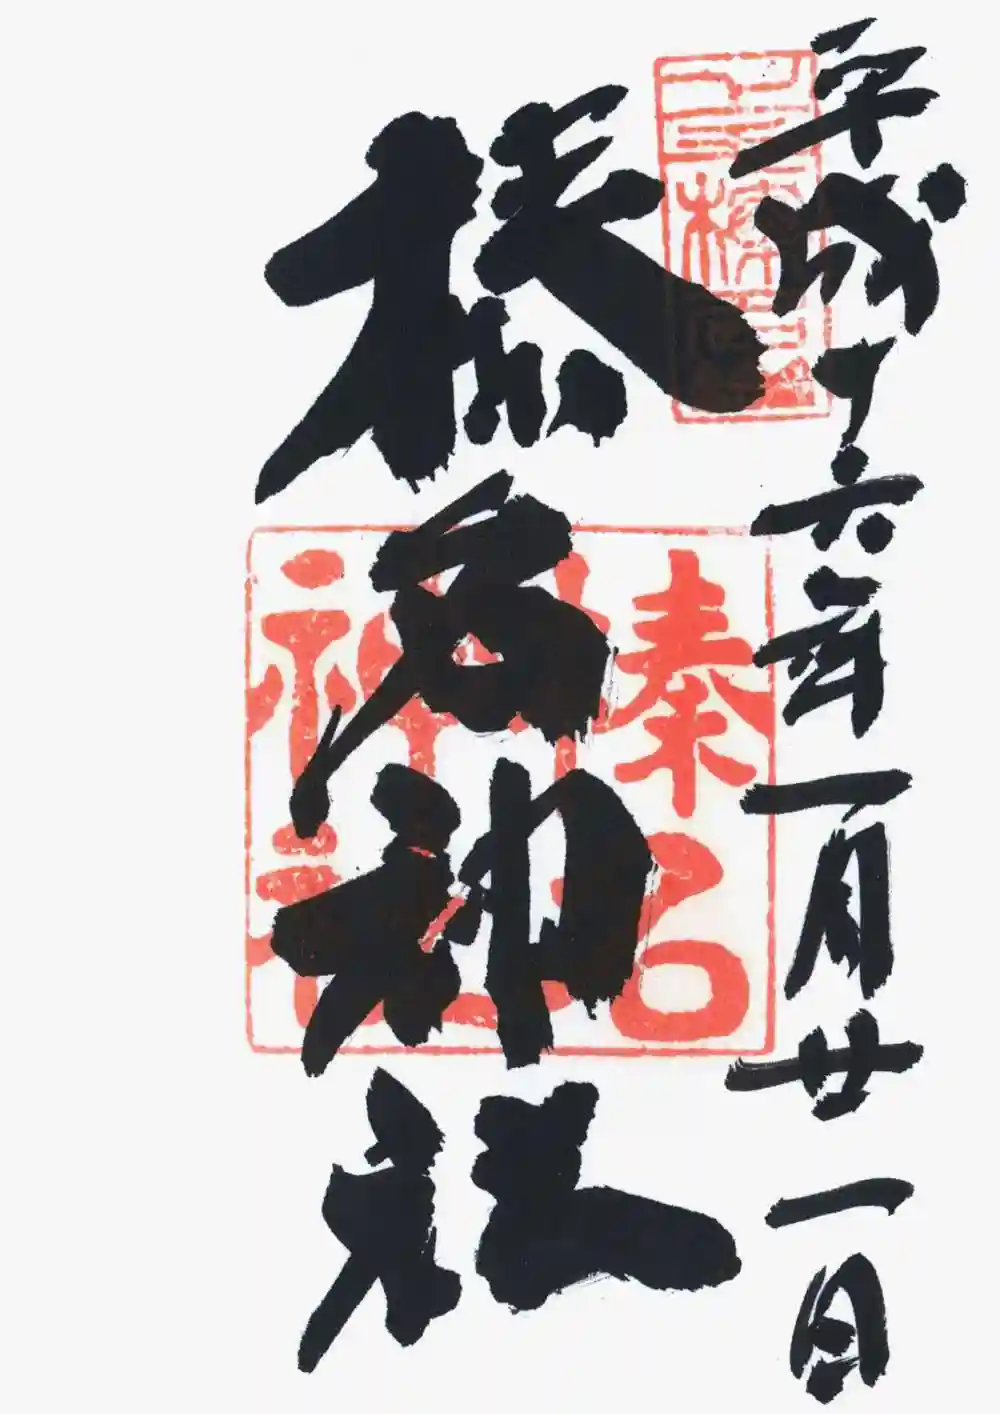 平成十六年一月廿一日
榛名神社
榛名
神社